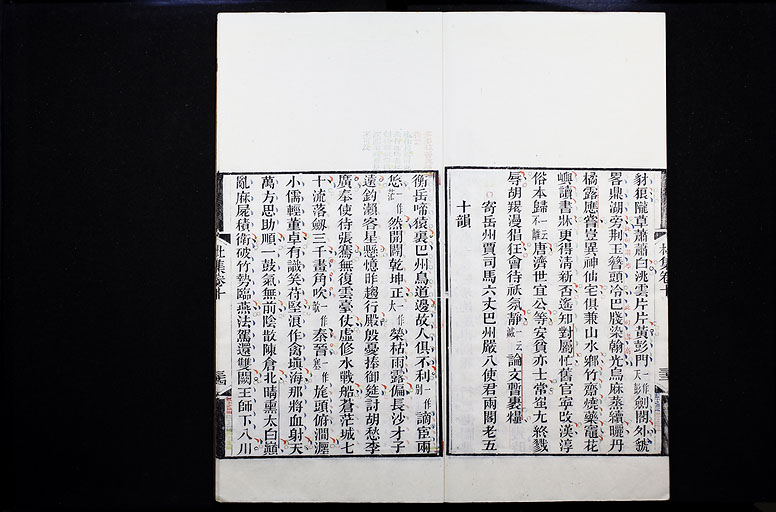 杜集卷十
豺狼隴草蕭蕭白洮雲片片黃彭門一作天彭劍閣外虢
畧鼎湖旁荆玉簪頭冷巴牋染翰光烏麻蒸續曬丹
橘露應嘗豈異神仙宅俱兼山水鄉竹齋燒藥竈花
嶼讀書牀更得清新否遥知對屬忙舊官寧改漢淳
俗本歸一云不離唐濟世宜公等安貧亦士常蚩尤終戮
辱胡羯漫猖狂會待祅氛静一云滅論文暫裹糧
○寄岳州賈司馬六丈巴州嚴八使君兩閣老五
十韻
衡岳啼猿裏巴州鳥道邊故人俱不利一作別謫宦兩
悠一作茫然開闢乾坤正一作大榮枯雨露偏長沙才子
遠釣瀨客星懸憶昨趨行殿殷憂捧御筵討胡愁李
廣奉使待張騫無復雲臺仗虛修水戰船蒼茫城七
十流落劍三千畫角吹一作秦晉一作旄頭俯澗瀍
小儒輕董卓有識笑苻堅浪作禽填海那將血射天
萬方思助順一鼓氣無前陰散陳倉北晴熏太白巔
亂麻屍積衛破竹勢臨燕法駕還雙闕王師下八川
杜集卷十